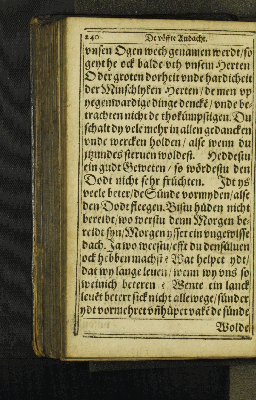 240 De vöffte Andacht.
vnsen Ogen wech genamen werdt / so
geyt he ock balde vth vnsem Herten
O der groten dorheit vnde hardicheit
der Minschlyken Herten / de men vp
yegenwardige dinge dencke / vnde be-
trachten nicht de thokümpstigen. Du
schalt dy vele mehr in allen gedancken
vnde wercken holden / alse wenn du
ytzundes steruen woldest. Heddestu
ein gudt Geweten / so wördestu den
Dodt nicht sehr früchten. Idt ys
veele beter / de Sünde vormyden / alse
den Dodt fleegen. Bistu hüden nicht
bereidt / wo werstu denn Morgen be-
reidt syn / Morgen ys ser ein vngewisse
dach. Ja wo weestu / efft du densüluen
ock hebben machst? Wat helpet ydt /
dat wy lange leuen / wenn wy vns so
weinich beteren? Wente ein lanck
leuēt betert sick nicht allewege / sünder
ydt vormehret vñ hüpet vakē de sünde
Wolde